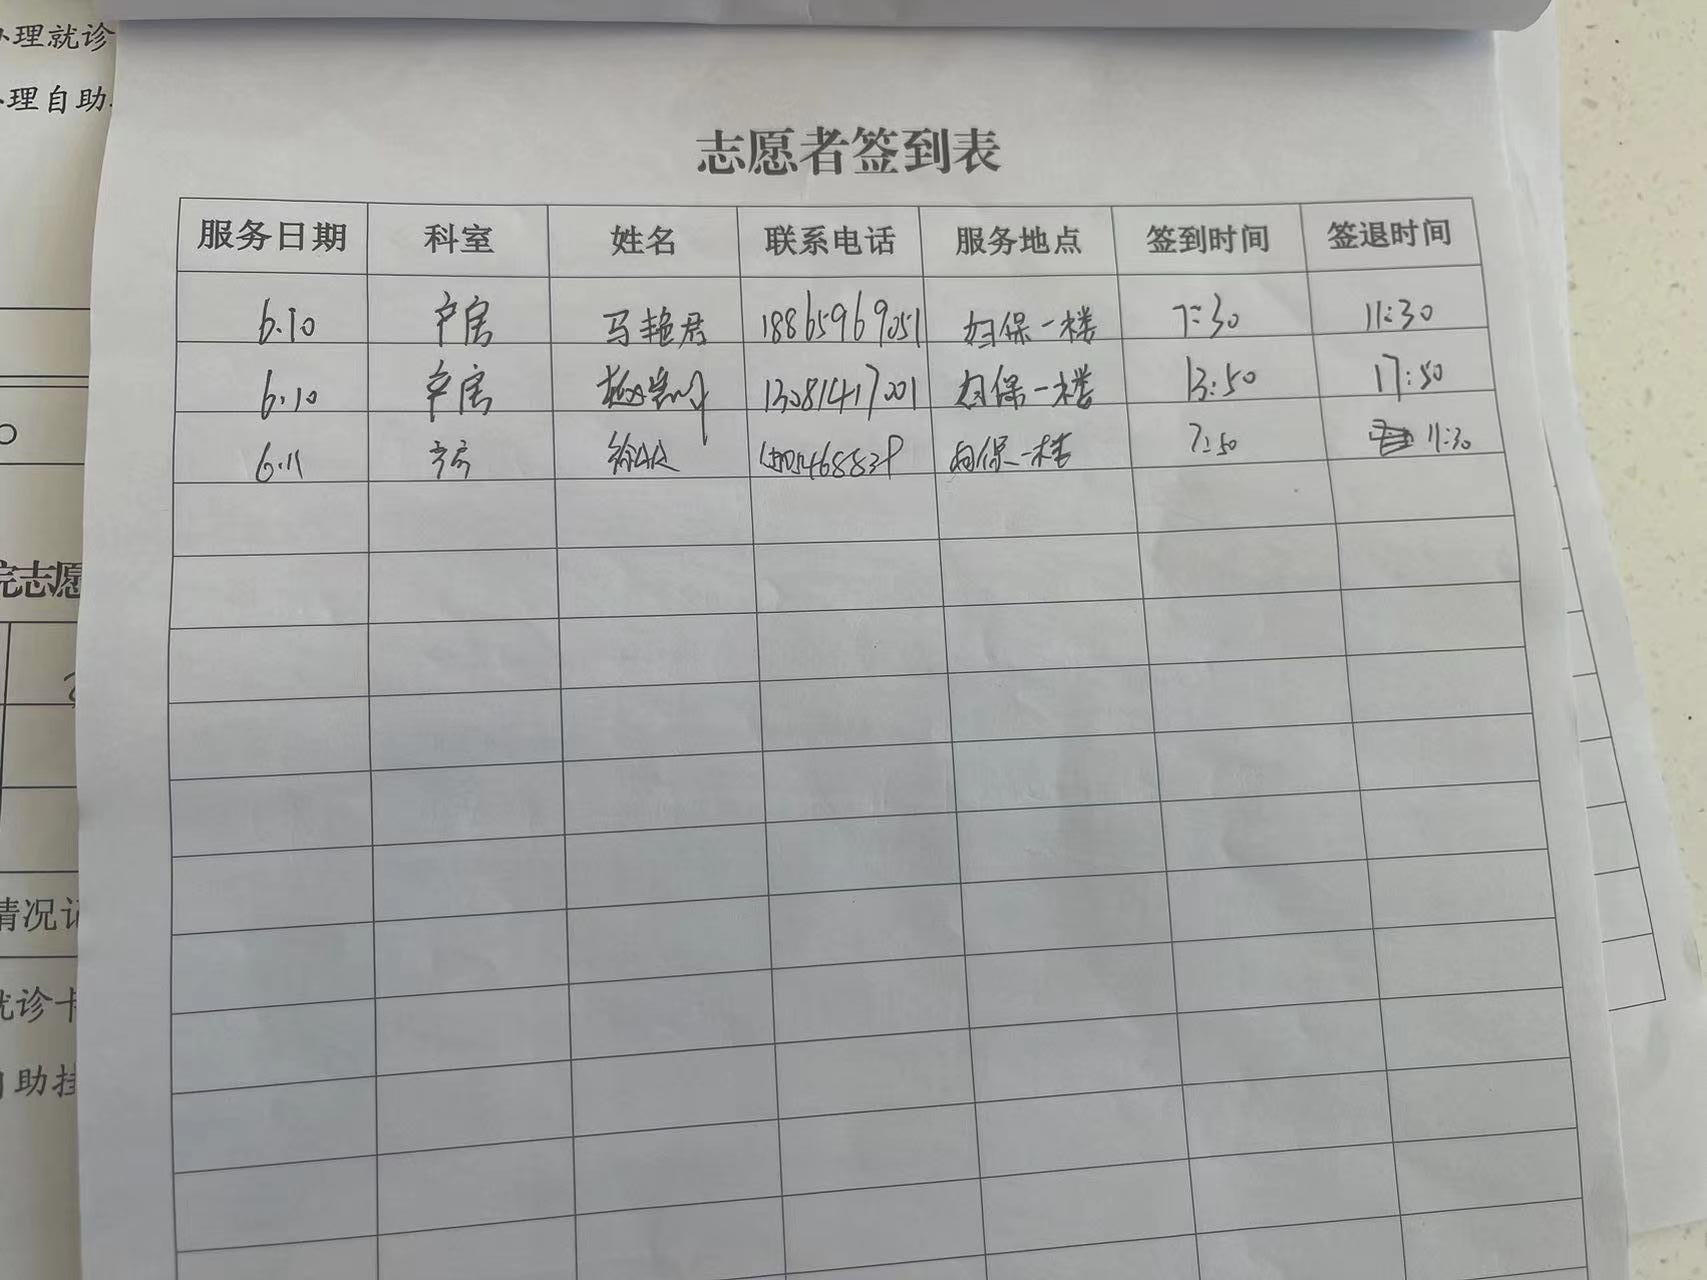 办理就诊
办理自助
志愿者签到表
服务日期 科室 姓名 联系电话 服务地点 签到时间 签退时间
6.10 产房 马艳君 18865969051 妇保一楼 7:30 11:30
6.10 产房 13081417001 妇保一楼 13:50 17:50
6.11 产房 妇保一楼 7:50 11:30
院志愿
情况记
就诊卡
自助挂